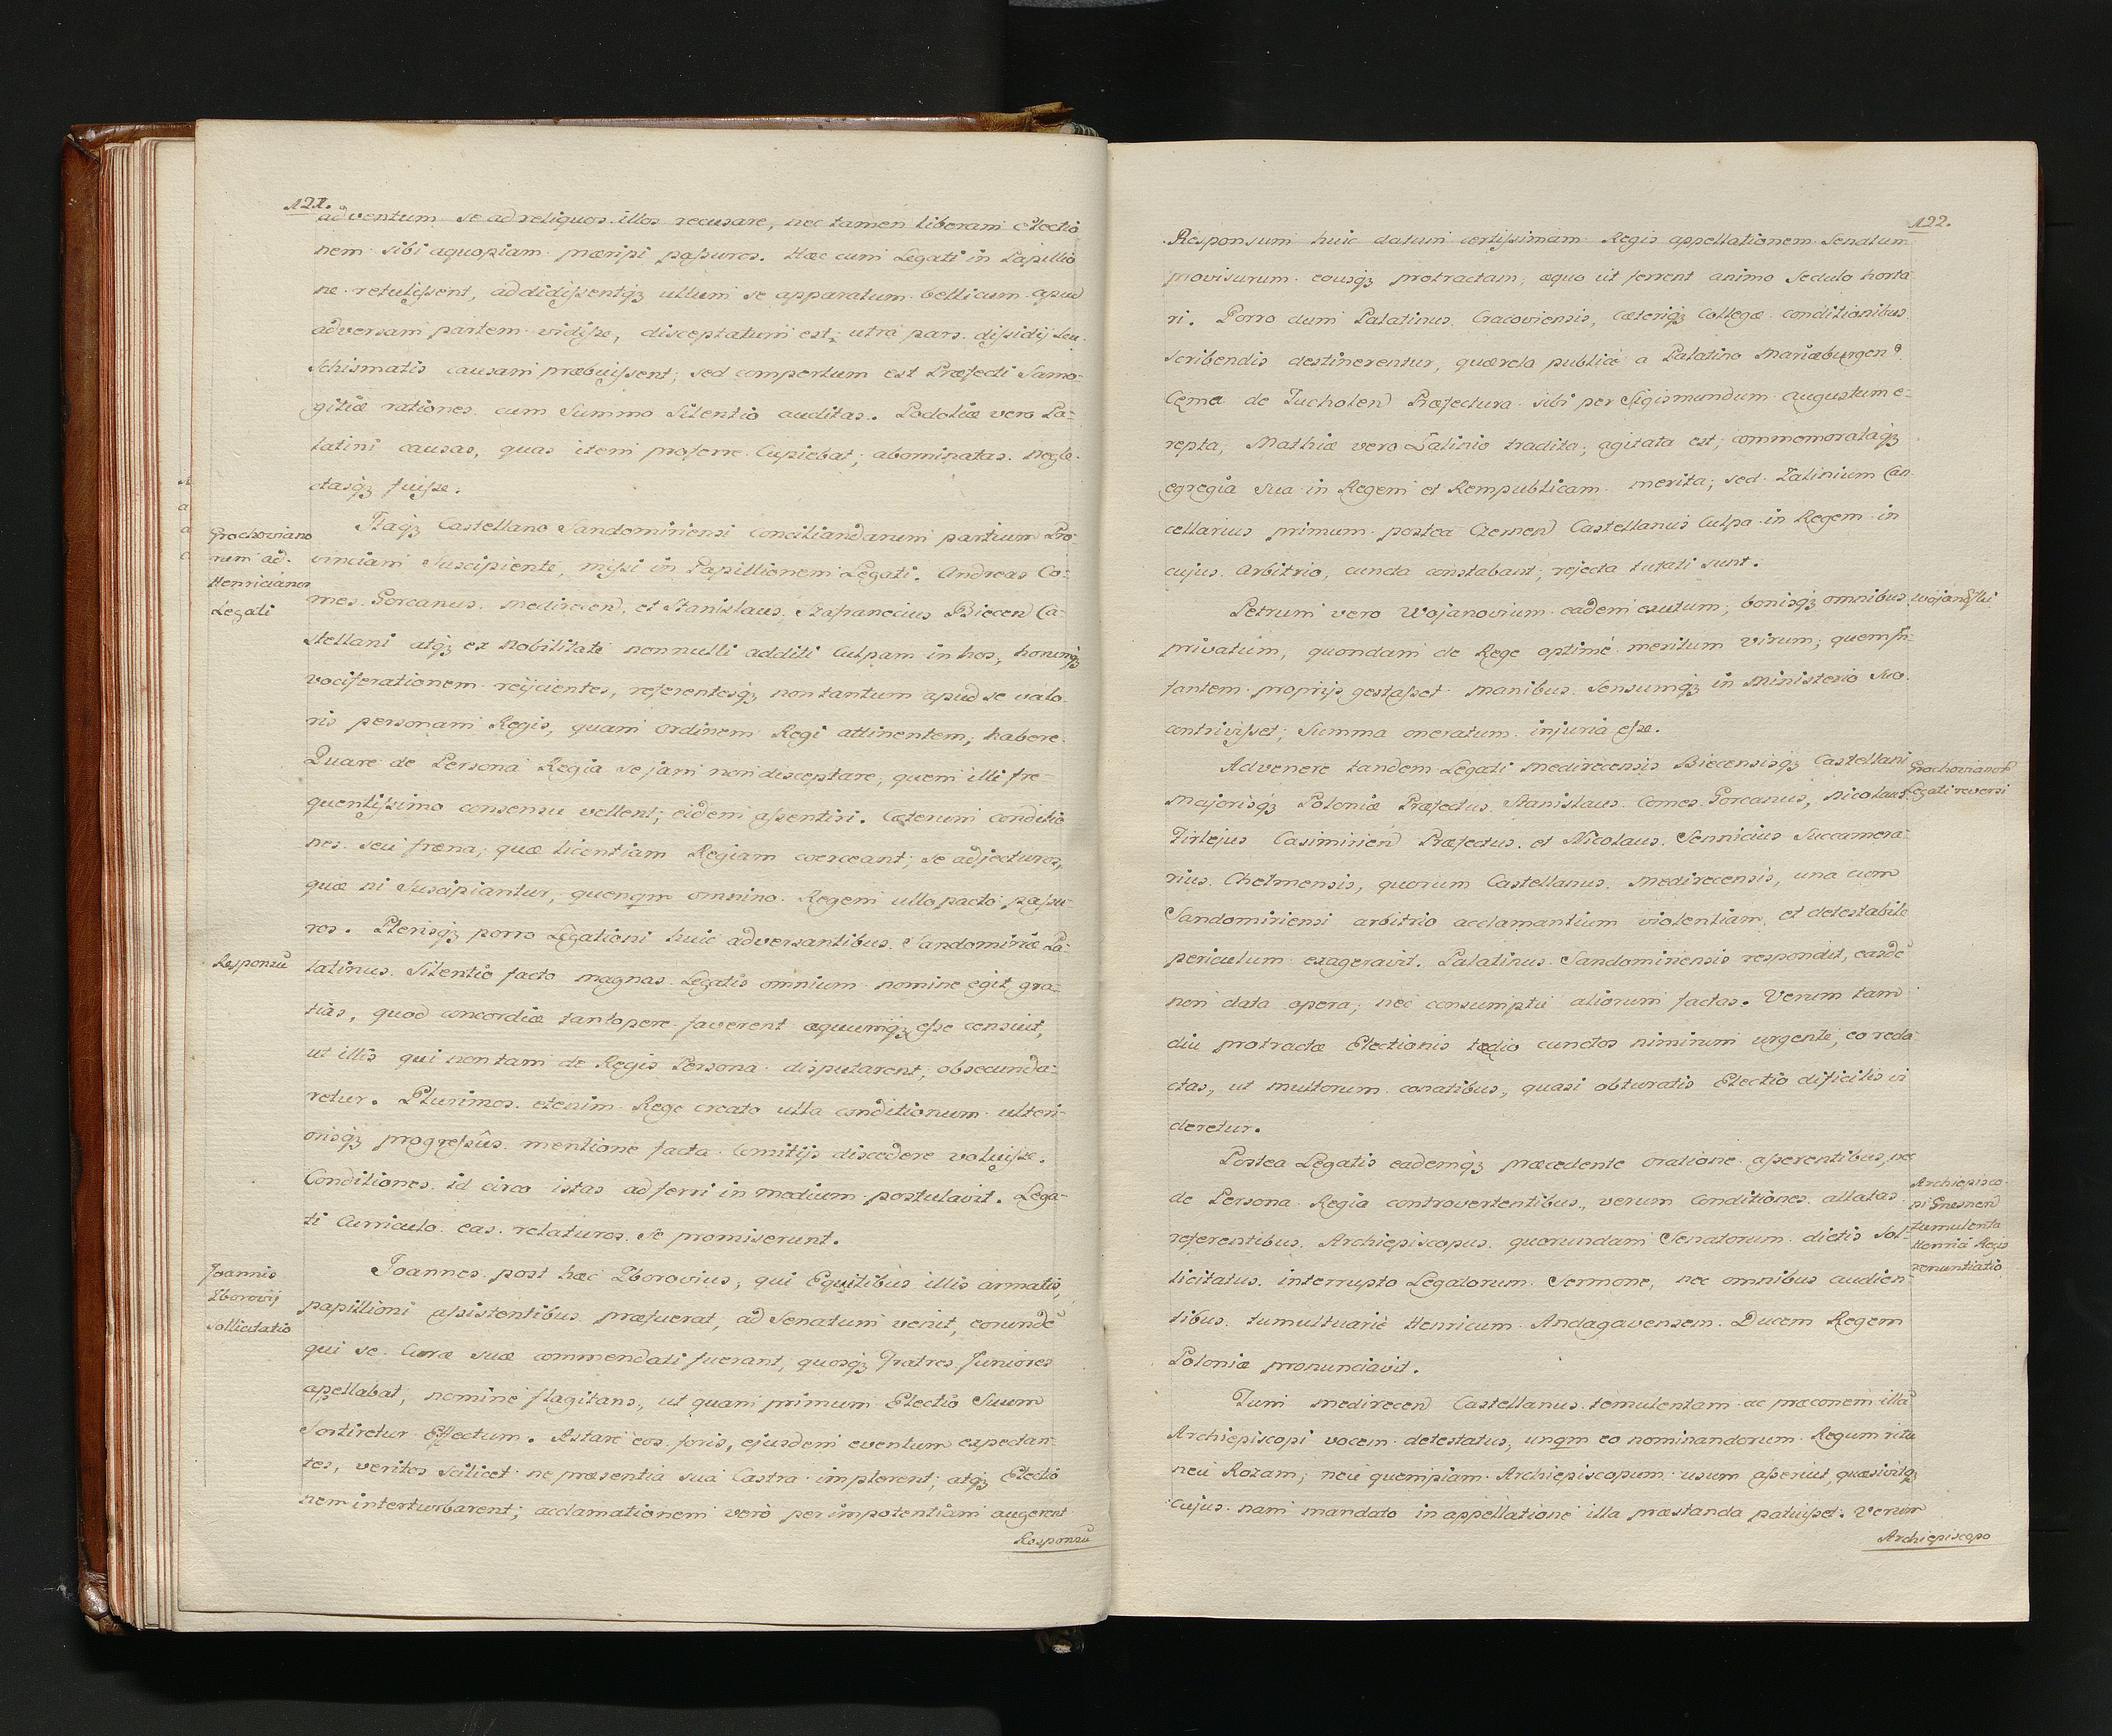 121.
adventum se ad reliquos illos recusare, nec tamen liberam Electio
nem sibi a quopiam præripi paſsuros. Hæc cum Legati in Papillio
ne retuliſsent, addidiſsentqꝫ ullum se apparatum bellicum apud
adversam partem vidiſse, disceptatum est, utra pars diſsidij seu
Schismatis causam præbuiſsent; sed compertum est Præfecti Samo-
gitiæ rationes cum Summo Silentio auditas. Podoliæ vero Pa-
latini causas, quas item proferre Cupiebat; abominatas negle-
ctasqꝫ fuiſse.
Grochoviano
rum ad
Henricianos
Legati
Itaqꝫ Castellano Sandomiriensi conciliandarum partium Pro-
vinciam Suscipiente, miſsi in Papillionem Legati. Andreas Co-
mes Gorcanus medirecen, et Stanislaus Szafranecius Biecen Ca-
stellani atqꝫ ex Nobilitate nonnulli additi Culpam in hos, horumqꝫ
vociferationem reijcientes, referentesqꝫ non tantum apud se valo-
ris personam Regis, quam ordinem Regi attinentem, habere.
Quare de Persona Regia se jam non disceptare, quem illi fre-
quentiſsimo consensu vellent; eidem aſsentiri. Cæterum conditio
nes seu fræna; quæ licentiam Regiam coerceant; se adjecturos,
quæ ni Suscipiantur, quenqm omnino Regem ullo pacto paſsu-
ros. Plerisqꝫ porro Legationi huic adversantibus Sandomiriæ Pa-
Responsū
latinus Silentio facto magnas Legatis omnium nomine egit gra-
tias, quod concordiæ tantopere faverent æquumqꝫ eſse censuit,
ut illis qui non tam de Regis Persona disputarent, obsecunda-
retur. Plurimos etenim Rege creato ulla conditionum ulteri-
orisqꝫ progreſsûs mentione facta Comitijs discedere voluiſse.
Conditiones id circo istas adferri in medium postulavit. Lega-
ti Curriculo eas relaturos se promiserunt.
Joannis
Zborovij
Sollicitatio
Joannes post hæc Zborovius, qui Equitibus illis armatis,
papillioni aſsistentibus præfuerat, ad Senatum venit, eorundē
qui se Curæ suæ commendati fuerant, quosqꝫ Fratres Juniores
apellabat, nomine flagitans, ut quam primum Electio Suum
Sortiretur Effectum. Astare eos foris, ejusdem eventum expectan-
tes, veritos scilicet ne præsentia sua Castra implerent, atqꝫ Electio
nem interturbarent; acclamationem verò per impotentiam augerent
Responsū
122.
Responsum huic datum certiſsimam Regis appellationem Senatum
provisurum eousqꝫ protractam, æquo ut ferrent animo sedulo horta
ri. Porro dum Palatinus Cracoviensis, Cæteriqꝫ Collegæ conditionibus
scribendis destinerentur, quærela publicè a Palatino Mariæburgen
Cema de Tucholen Præfectura sibi per Sigismundum Augustum e-
repta, Mathiæ vero Zalinio tradita, agitata est, commemorataqꝫ
egregia Sua in Regem et Rempublicam merita; sed Zalinium Can
cellarius primum postea Czernen Castellanus Culpa in Regem in
cujus Arbitrio, cuncta constabant; rejecta tutati sunt.
Petrum vero Wojanovium eadem exutum, bonisqꝫ omnibus
privatum, quondam de Rege optimè meritum virum; quem In-
fantem proprijs gestaſset manibus Sensumqꝫ in Ministerio Suo
contriviſset; Summa oneratum injuria eſse.
Advenere tandem Legati Medirecensis Biecensisqꝫ Castellani
Grochovianor
Legati reversi
Majorisqꝫ Poloniæ Præfectus Stanislaus Comes Gorcanus, Nicolaus
Firlejus Casimirien Præfectus et Nicolaus Sennicius Succamera-
rius Chelmensis, quorum Castellanus Medirecensis, una cum
Sandomiriensi arbitrio acclamantium violentiam et detestabile
periculum exageravit. Palatinus Sandomiriensis respondit, easdē
non data opera, nec consumptu aliorum factas. Verum tam
diu protractæ Electionis tædio cunctos nimirum urgente, eo reda
ctas, ut multorum conatibus, quasi obturatis Electio dificilis vi
deretur.
Postea Legatis eademqꝫ præcedente oratione aſserentibus, nec
Archiepisco-
pi Gnesnen
tumulenta
Henrici Regis
renuntiatio
de Persona Regia controvertentibus, verum Conditiones allatas
referentibus Archiepiscopus quorundam Senatorum dictis Sol-
licitatus interrupto Legatorum Sermone, nec omnibus audien-
tibus tumultuariè Henricum Andagavensem Ducem Regem
Poloniæ pronunciavit.
Tum Medirecen Castellanus temulentam ac præconem illā
Archiepiscopi vocem detestatus, unqm eo nominandorum Regum ritu
neu Rozam, neu quempiam Archiepiscopum usum aſseruit, quæsivitqꝫ
cujus nam mandato in appellatione illa præstanda patuiſset. Verum
Archiepiscopo